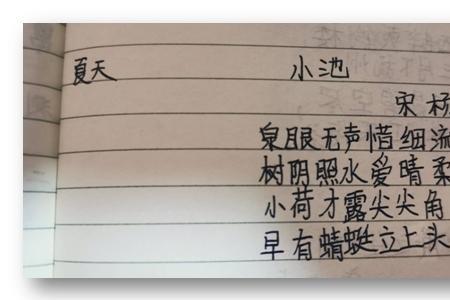 夏天 小池
宋 杨
泉眼无声惜细流
树阴照水爱晴柔
小荷才露尖尖角
早有蜻蜓立上头